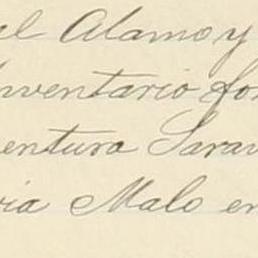 al Alamo y
Inventario for
entura Sarav
ria Malo en